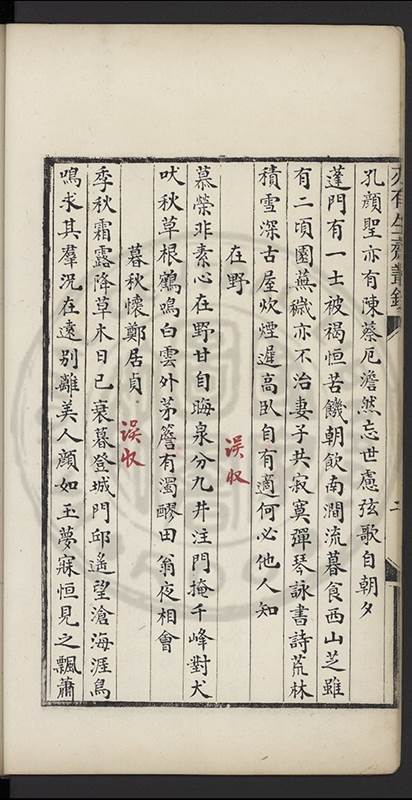 孔顏聖亦有陳蔡厄澹然忘世慮弦歌自朝夕
蓬門有一士被褐恒苦饑朝飲南澗流暮食西山芝雖
有二頃園蕪穢亦不治妻子共寂寞彈琴詠書詩荒林
積雪深古屋炊煙遲高臥自有適何必他人知
在野
誤收
慕榮非素心在野甘自晦泉分九井注門掩千峰對犬
吠秋草根鶴鳴白雲外茅簷有濁醪田翁夜相會
暮秋懷鄭居貞
誤收
季秋霜露降草木日已衰暮登城門邱遙望滄海涯鳥
鳴求其羣況在遠別離美人顏如玉夢寐恒見之飄蕭